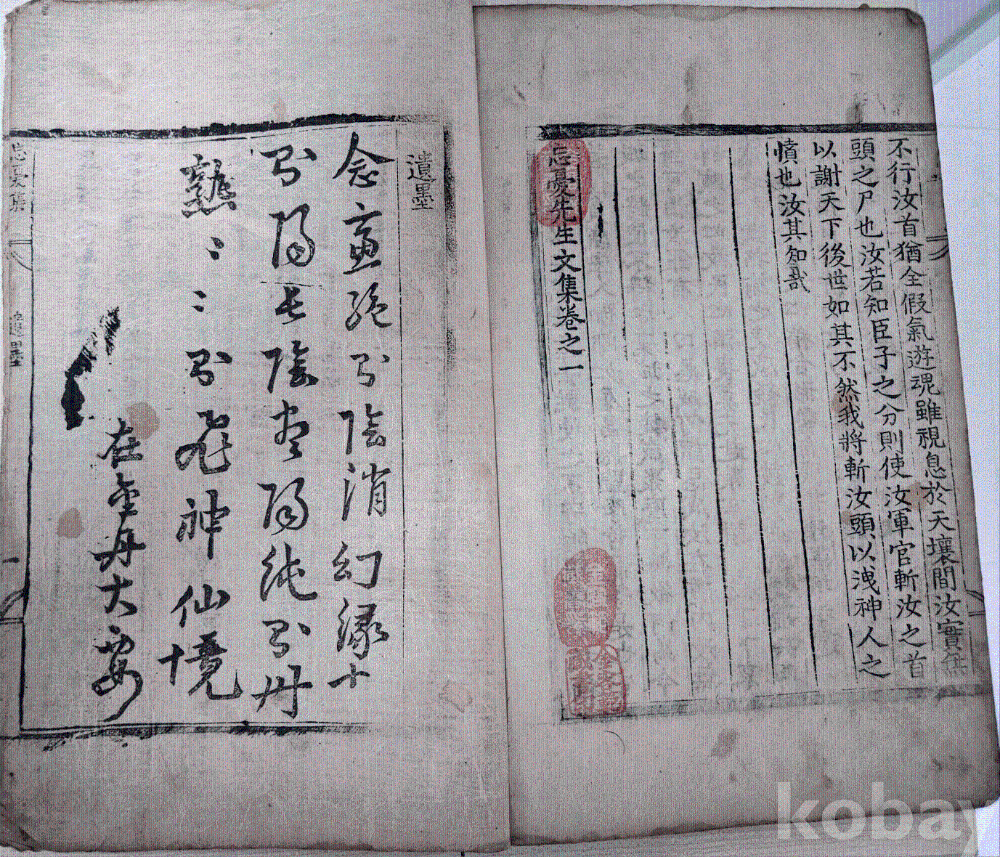 不行汝首猶全假氣遊魂雖視息於天壤間汝實
頭之尸也汝若知臣子之分則使汝軍官斬汝之首
以謝天下後世如其不然我將斬汝頭以洩神人之
憤也汝其知哉
忘憂先生文集卷之一
遺墨
念 絶 陰消幻緣十
陽長陰盡陽純 丹
熟 神仙境
在金丹大要
忘憂集
遺墨
kobay